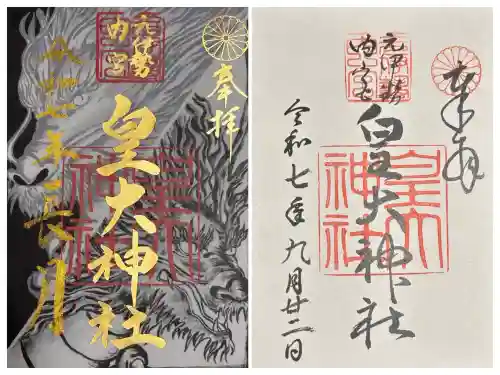 奉拝
元伊勢
内宮
皇大神社
令和七年
長月
皇大
神社
奉拝
元伊勢
内宮
皇大神社
令和七年九月廿二日
皇大
神社